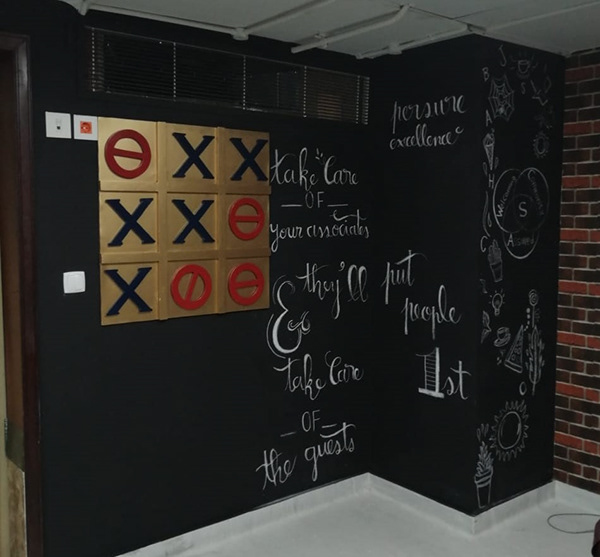 take Care
OF
your associates
&
they'll
take Care
OF
the guests
excellence
put
people
1st
S
X X
X X
X